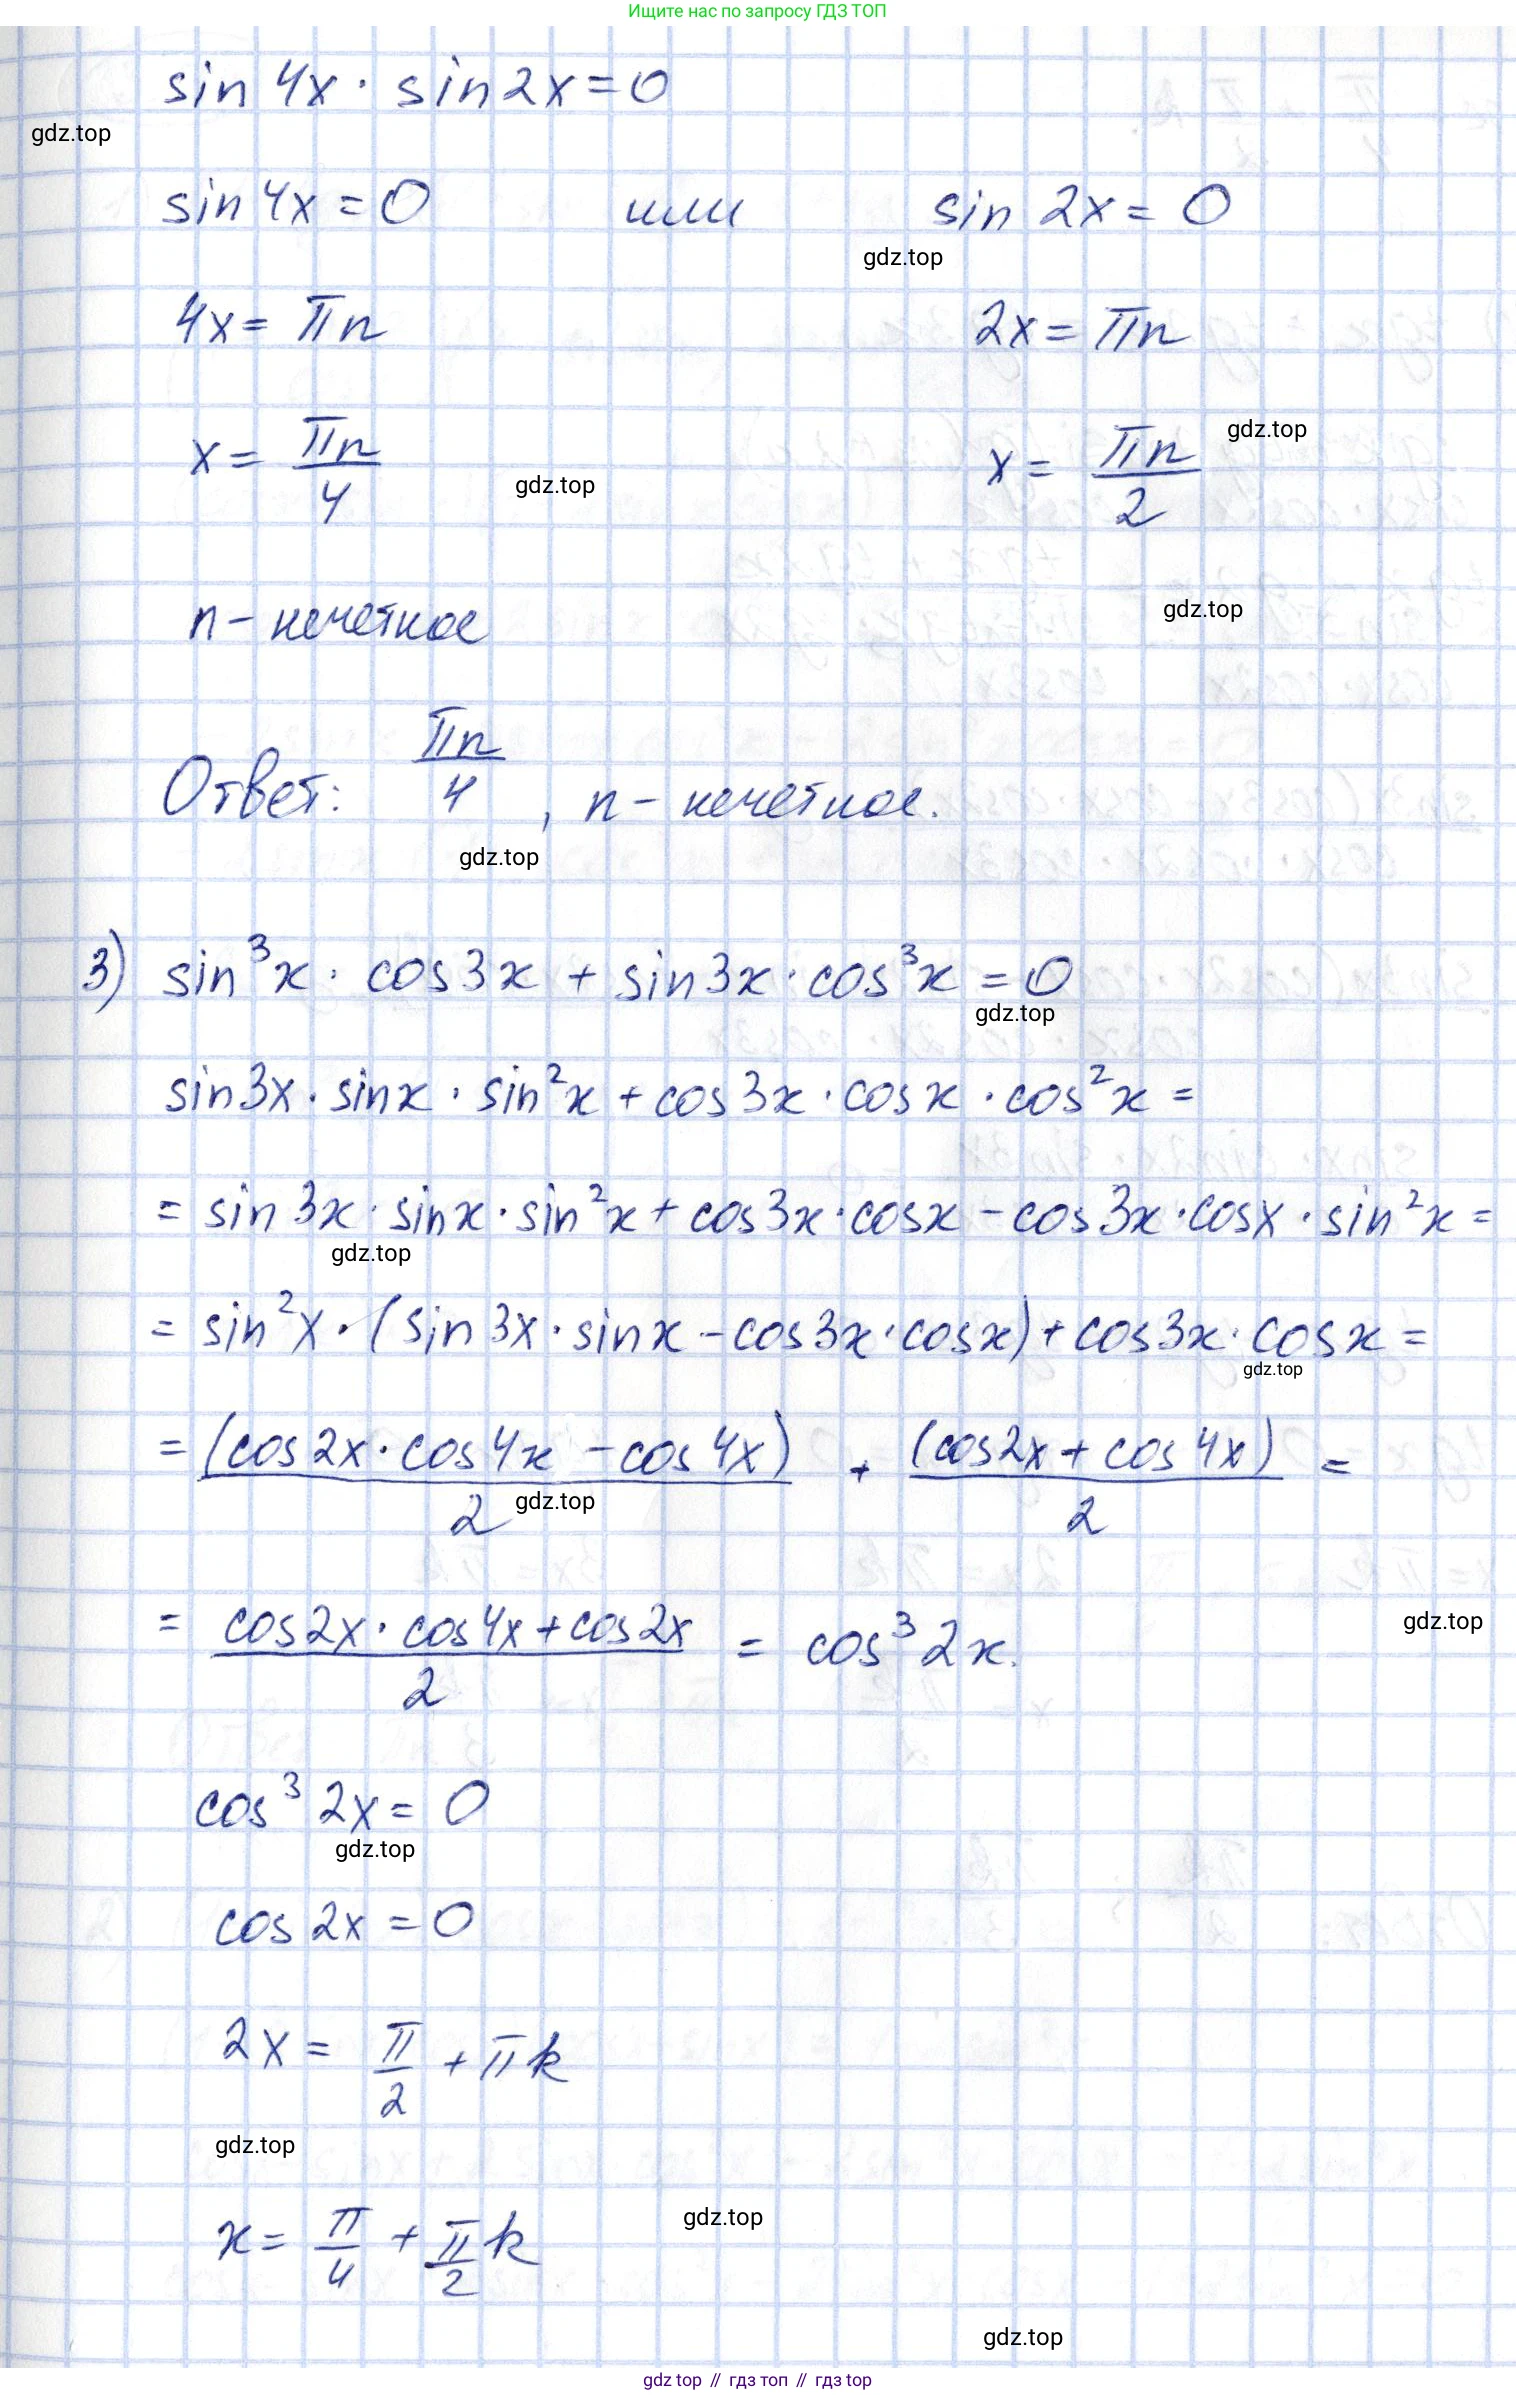 Ищите нас по запросу ГДЗ ТОП
sin 4x · sin 2x = 0
gdz.top
sin 4x = 0 или sin 2x = 0
gdz.top
4x = πn 2x = πn
x = πn/4 x = πn/2
gdz.top
gdz.top
n - нечетное
gdz.top
Ответ: πn/4, n - нечетное.
gdz.top
3) sin³x · cos3x + sin3x · cos³x = 0
gdz.top
sin3x · sinx · sin²x + cos3x · cosx · cos²x =
= sin3x · sinx · sin²x + cos3x · cosx - cos3x · cosx · sin²x =
gdz.top
= sin²x · (sin3x · sinx - cos3x · cosx) + cos3x · cosx =
gdz.top
= (cos2x · cos4x - cos4x)/2 + (cos2x + cos4x)/2 =
gdz.top
= (cos2x · cos4x + cos2x)/2 = cos³2x.
gdz.top
cos³2x = 0
gdz.top
cos2x = 0
2x = π/2 + πk
gdz.top
x = π/4 + π/2 k
gdz.top
gdz.top
gdz top // гдз топ // гдз top